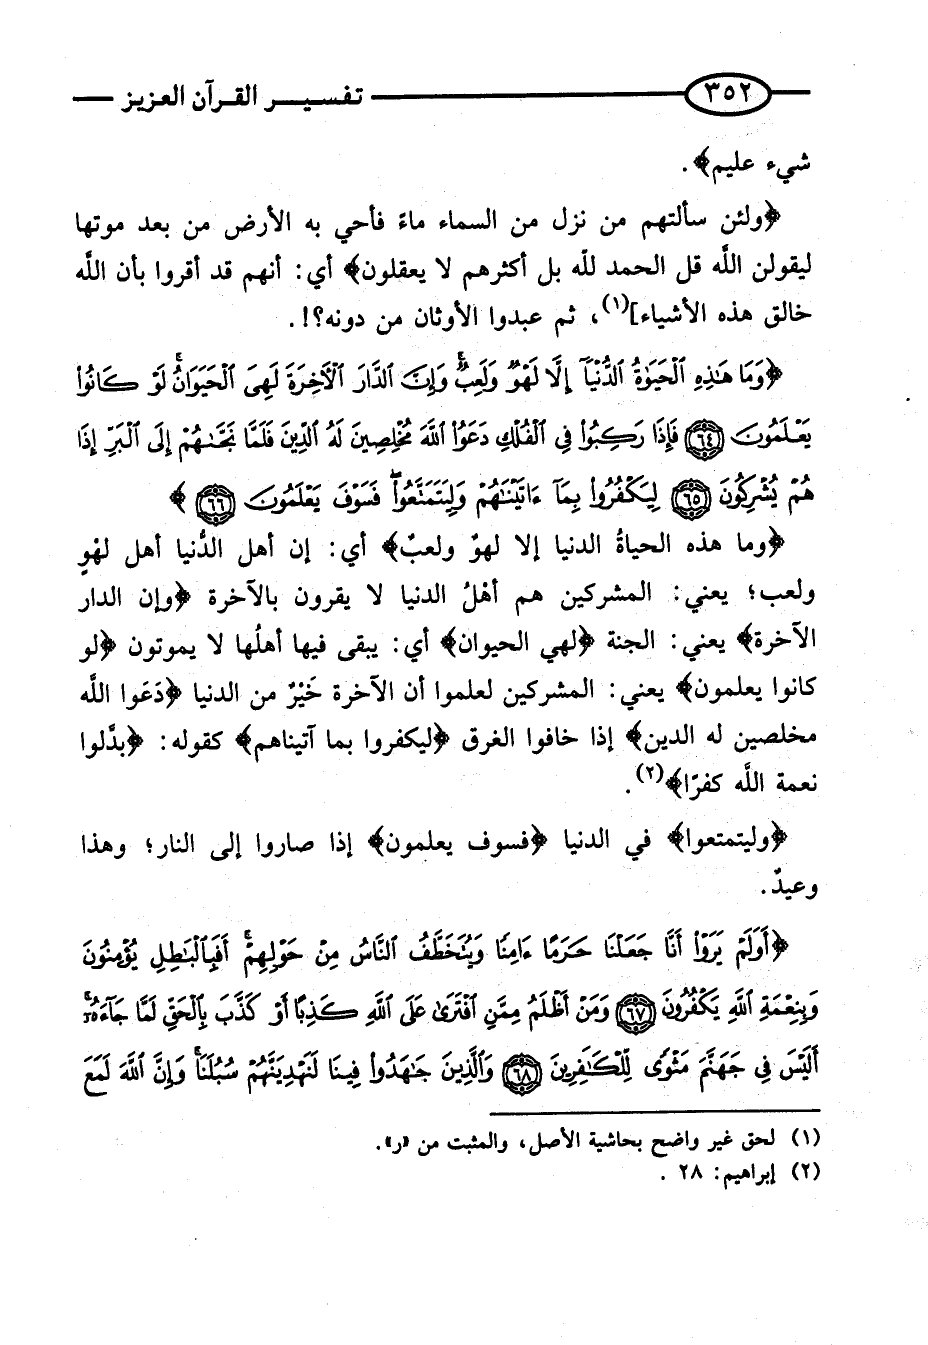 ٣٥٢ تفسير القرآن العزيز
شيء عليم﴾.
﴿ولئن سألتهم من نزل من السماء ماءً فأحي به الأرض من بعد موتها
ليقولن اللَّه قل الحمد للَّه بل أكثرهم لا يعقلون﴾ أي: أنهم قد أقروا بأن اللَّه
خالق هذه الأشياء](١)، ثم عبدوا الأوثان من دونه؟!.
﴿وَمَا هَٰذِهِ ٱلْحَيَوٰةُ ٱلدُّنْيَآ إِلَّا لَهْوٌ وَلَعِبٌ ۚ وَإِنَّ ٱلدَّارَ ٱلْأَخِرَةَ لَهِىَ ٱلْحَيَوَانُ ۚ لَوْ كَانُوا۟
يَعْلَمُونَ ٦٤ فَإِذَا رَكِبُوا۟ فِى ٱلْفُلْكِ دَعَوُا۟ ٱللَّهَ مُخْلِصِينَ لَهُ ٱلدِّينَ فَلَمَّا نَجَّىٰهُمْ إِلَى ٱلْبَرِّ إِذَا
هُمْ يُشْرِكُونَ ٦٥ لِيَكْفُرُوا۟ بِمَآ ءَاتَيْنَٰهُمْ وَلِيَتَمَتَّعُوا۟ ۖ فَسَوْفَ يَعْلَمُونَ ٦٦ ﴾
﴿وما هذه الحياةُ الدنيا إلا لهوٌ ولعبٌ﴾ أي: إن أهل الدُّنيا أهل لهْوٍ
ولعب؛ يعني: المشركين هم أهْلُ الدنيا لا يقرون بالآخرة ﴿وإن الدار
الآخرة﴾ يعني: الجنة ﴿لهي الحيوان﴾ أي: يبقى فيها أهلُها لا يموتون ﴿لو
كانوا يعلمون﴾ يعني: المشركين لعلموا أن الآخرة خَيْرٌ من الدنيا ﴿دَعَوا اللَّه
مخلصين له الدين﴾ إذا خافوا الغرق ﴿ليكفروا بما آتيناهم﴾ كقوله: ﴿بدَّلوا
نعمة اللَّه كفرًا﴾(٢).
﴿وليتمتعوا﴾ في الدنيا ﴿فسوف يعلمون﴾ إذا صاروا إلى النار؛ وهذا
وعيدٌ.
﴿أَوَلَمْ يَرَوْا۟ أَنَّا جَعَلْنَا حَرَمًا ءَامِنًا وَيُتَخَطَّفُ ٱلنَّاسُ مِنْ حَوْلِهِمْ ۚ أَفَبِٱلْبَٰطِلِ يُؤْمِنُونَ
وَبِنِعْمَةِ ٱللَّهِ يَكْفُرُونَ ٦٧ وَمَنْ أَظْلَمُ مِمَّنِ ٱفْتَرَىٰ عَلَى ٱللَّهِ كَذِبًا أَوْ كَذَّبَ بِٱلْحَقِّ لَمَّا جَآءَهُۥٓ ۚ
أَلَيْسَ فِى جَهَنَّمَ مَثْوًى لِّلْكَٰفِرِينَ ٦٨ وَٱلَّذِينَ جَٰهَدُوا۟ فِينَا لَنَهْدِيَنَّهُمْ سُبُلَنَا ۚ وَإِنَّ ٱللَّهَ لَمَعَ
(١) لحق غير واضح بحاشية الأصل، والمثبت من «ر».
(٢) إبراهيم: ٢٨ .